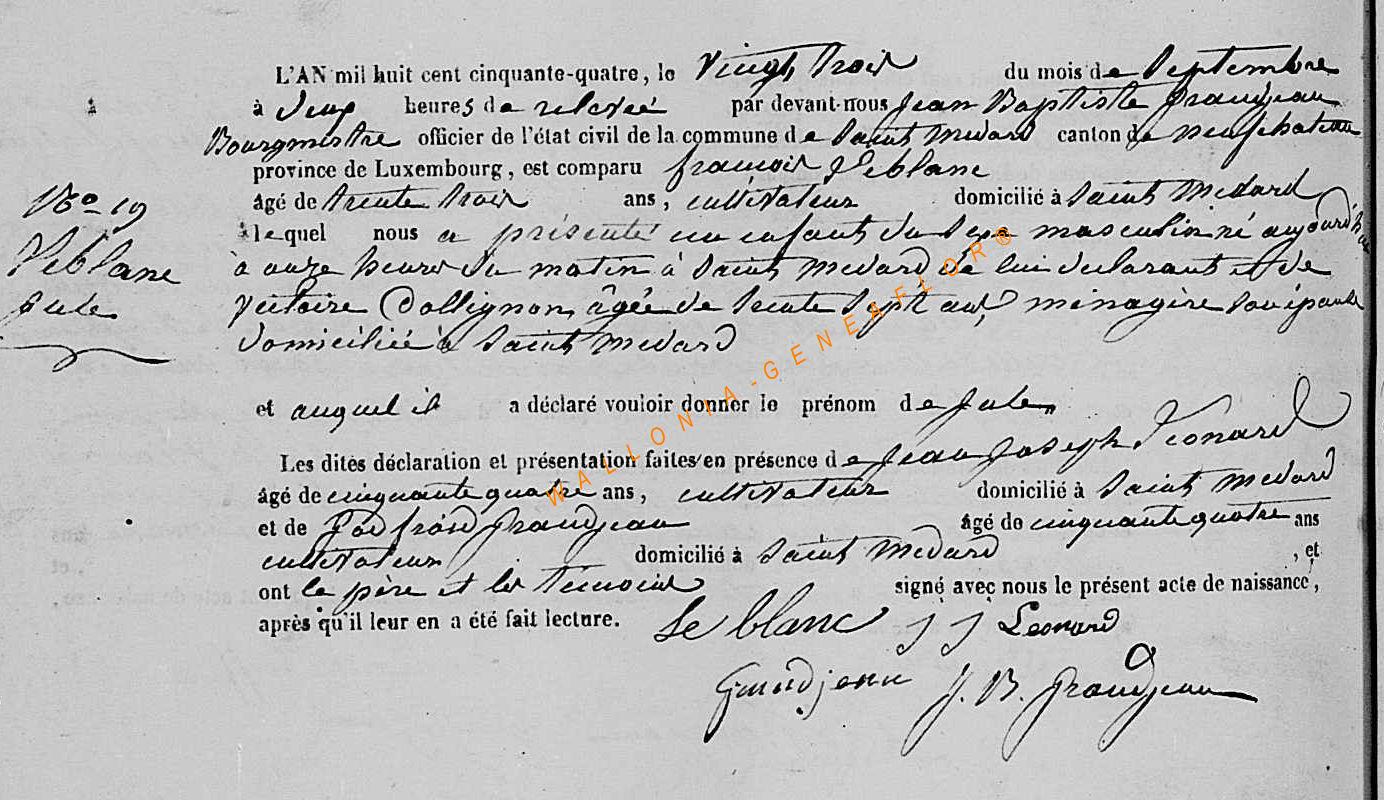 L'AN mil huit cent cinquante-quatre, le vingt trois du mois de Septembre
à deux heures de relevée par devant-nous Jean Baptiste Grandjean
Bourgmestre officier de l'état civil de la commune de Saint Medard canton de neufchateau
province de Luxembourg, est comparu francois Leblanc
No 19
âgé de trente trois ans, cultivateur domicilié à Saint Medard
lequel nous a présenté un enfant du sexe masculin né aujourd'hui
Leblanc
à onze heures du matin à Saint Medard de lui declarant et de
Jule
Victoire Collignon, âgée de trente sept ans, ménagère son épouse
domiciliée à Saint Medard
et auquel il a déclaré vouloir donner le prénom de Jule
Les dites déclaration et présentation faites en présence de Jean Joseph Léonard
âgé de cinquante quatre ans, cultivateur domicilié à Saint Medard
et de Godfroid Grandjean âgé de cinquante quatre ans
cultivateur domicilié à Saint Medard , et
ont le père et les témoins signé avec nous le présent acte de naissance,
après qu'il leur en a été fait lecture. Le blanc J J Leonard
Grandjean J. B. Grandjean
WALLONIA-GENEAFLOR®